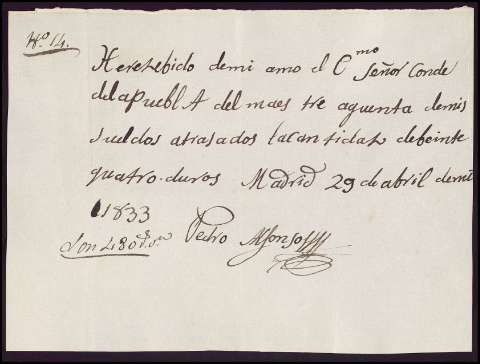 Nº 14.
He resebido demi amo el Cmo Señor Conde
dela puebla del maes tre aquenta demis
sueldos atrasados lacantidaz debeinte
quatro duros Madrid 29 de abril demil
1833
Son 480 rs. vn Pedro Alfonso